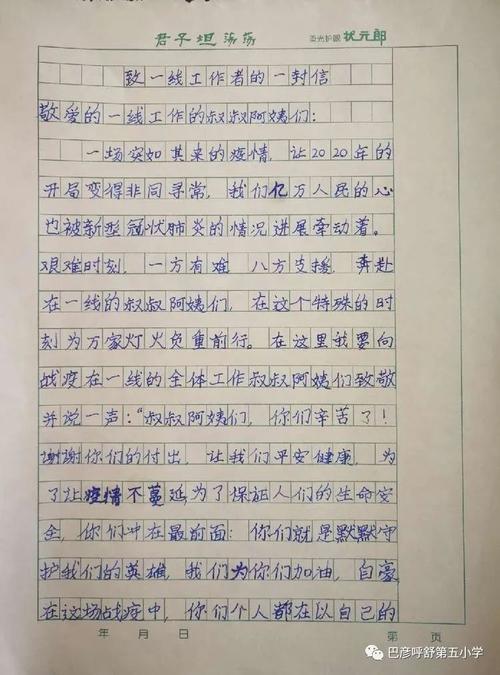 君子坦荡荡
柔光护眼 状元郎
致一线工作者的一封信
敬爱的一线工作的叔叔阿姨们：
一场突如其来的疫情，让2020年的
开局变得非同寻常，我们亿万人民的心
也被新型冠状肺炎的情况进展牵动着。
艰难时刻，一方有难 八方支援，奔赴
在一线的叔叔阿姨们，在这个特殊的时
刻为万家灯火负重前行。在这里我要向
战疫在一线的全体工作叔叔阿姨们致敬
并说一声：“叔叔阿姨们，你们辛苦了！
谢谢你们的付出，让我们平安健康，为
了让疫情不蔓延，为了保证人们的生命安
全，你们冲在最前面：你们就是默默守
护我们的英雄，我们为你们加油，自豪
在这场战疫中，你们个人都在以自己的
年 月 日
第 页
巴彦呼舒第五小学